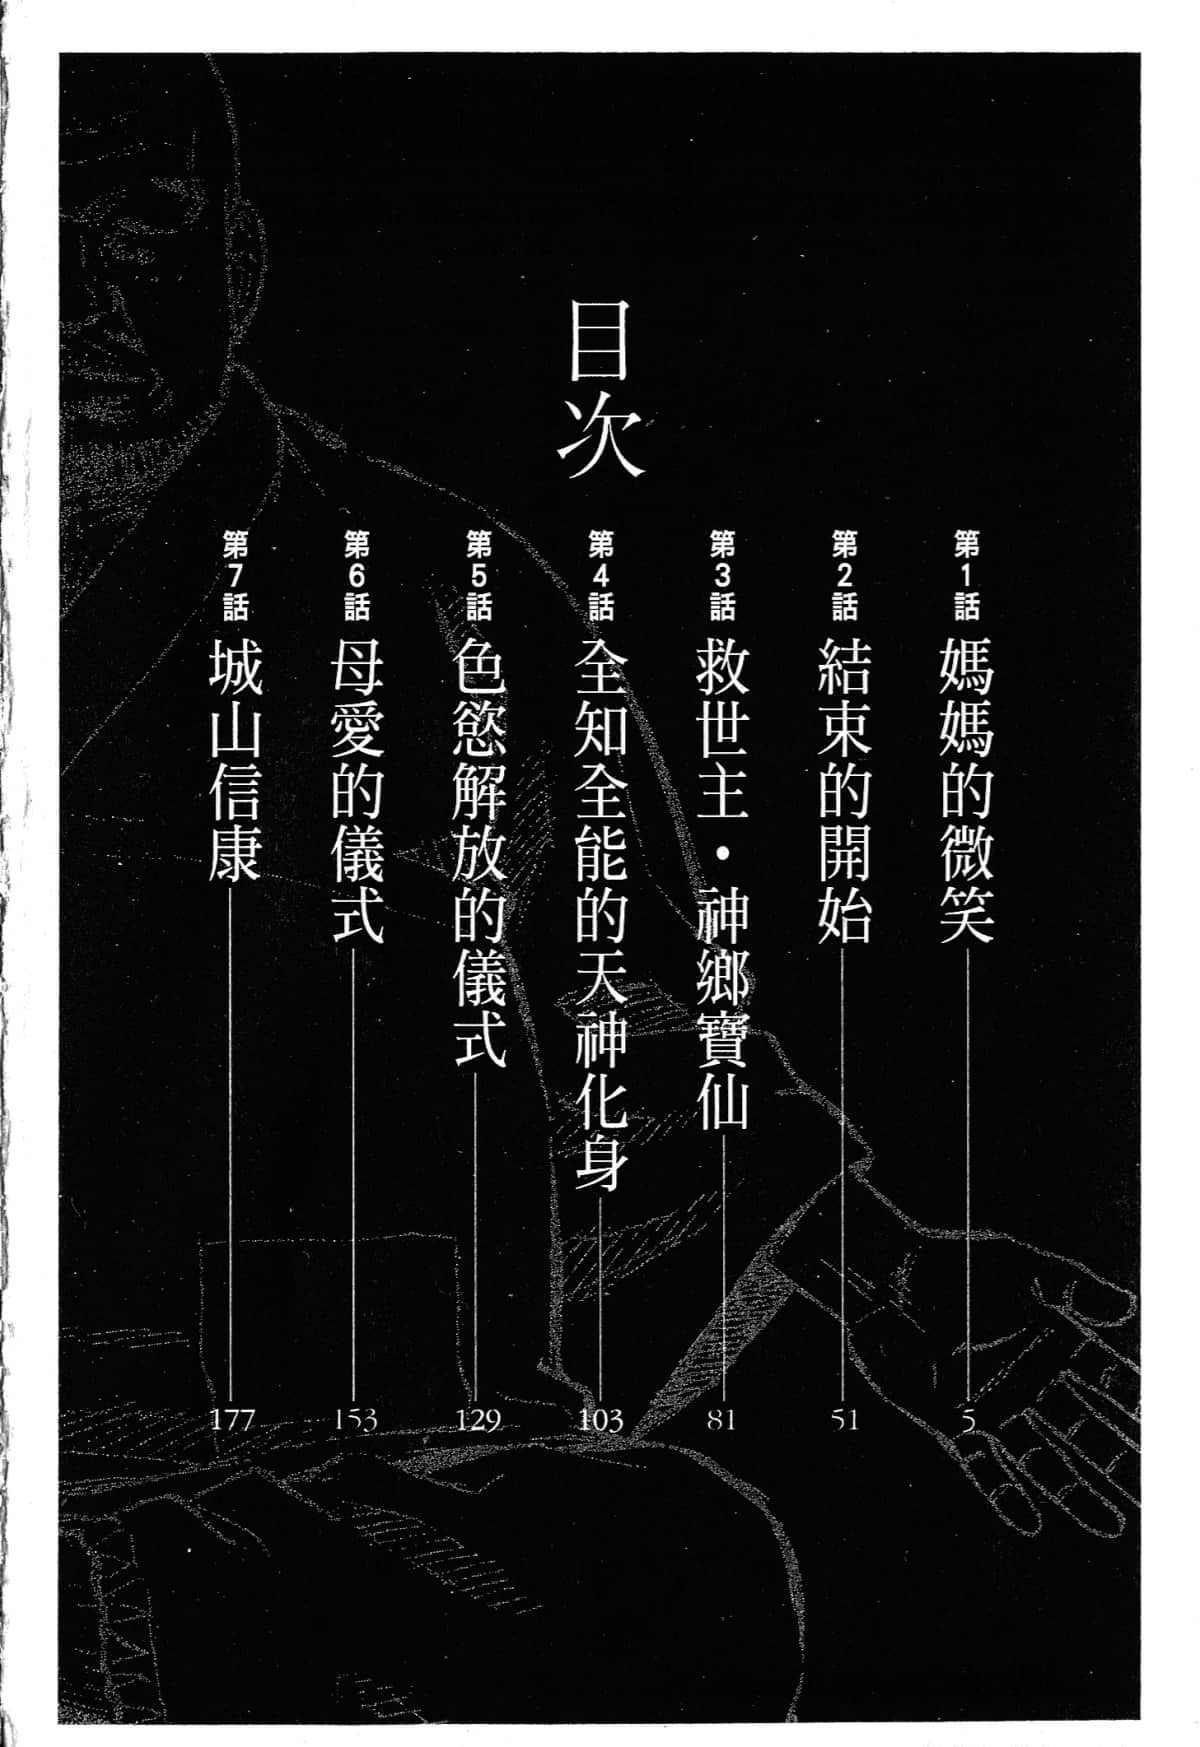 目次
第1話 媽媽的微笑 5
第2話 結束的開始 51
第3話 救世主・神鄉寶仙 81
第4話 全知全能的天神化身 103
第5話 色慾解放的儀式 129
第6話 母愛的儀式 153
第7話 城山信康 177